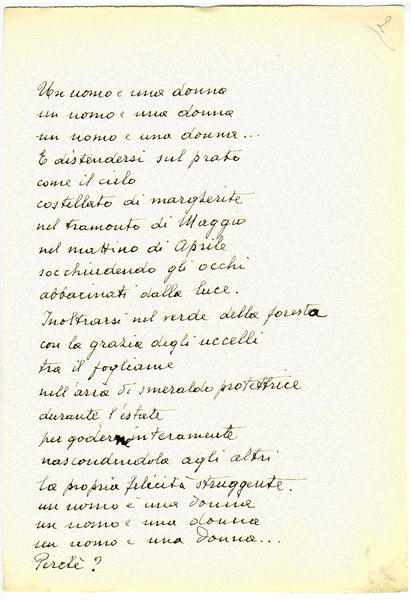 Un uomo e una donna
un uomo e una donna
un uomo e una donna...
E distendersi sul prato
come il cielo
costellato di margherite
nel tramonto di Maggio
nel mattino di Aprile
socchiudendo gli occhi
abbacinati dalla luce.
Inoltrarsi nel verde della foresta
con la grazia degli uccelli
tra il fogliame
nell'aria di smeraldo protettrice
durante l'estate
per goderne interamente
nascondendola agli altri
la propria felicità struggente.
un uomo e una donna
un uomo e una donna
un uomo e una donna...
Perchè?